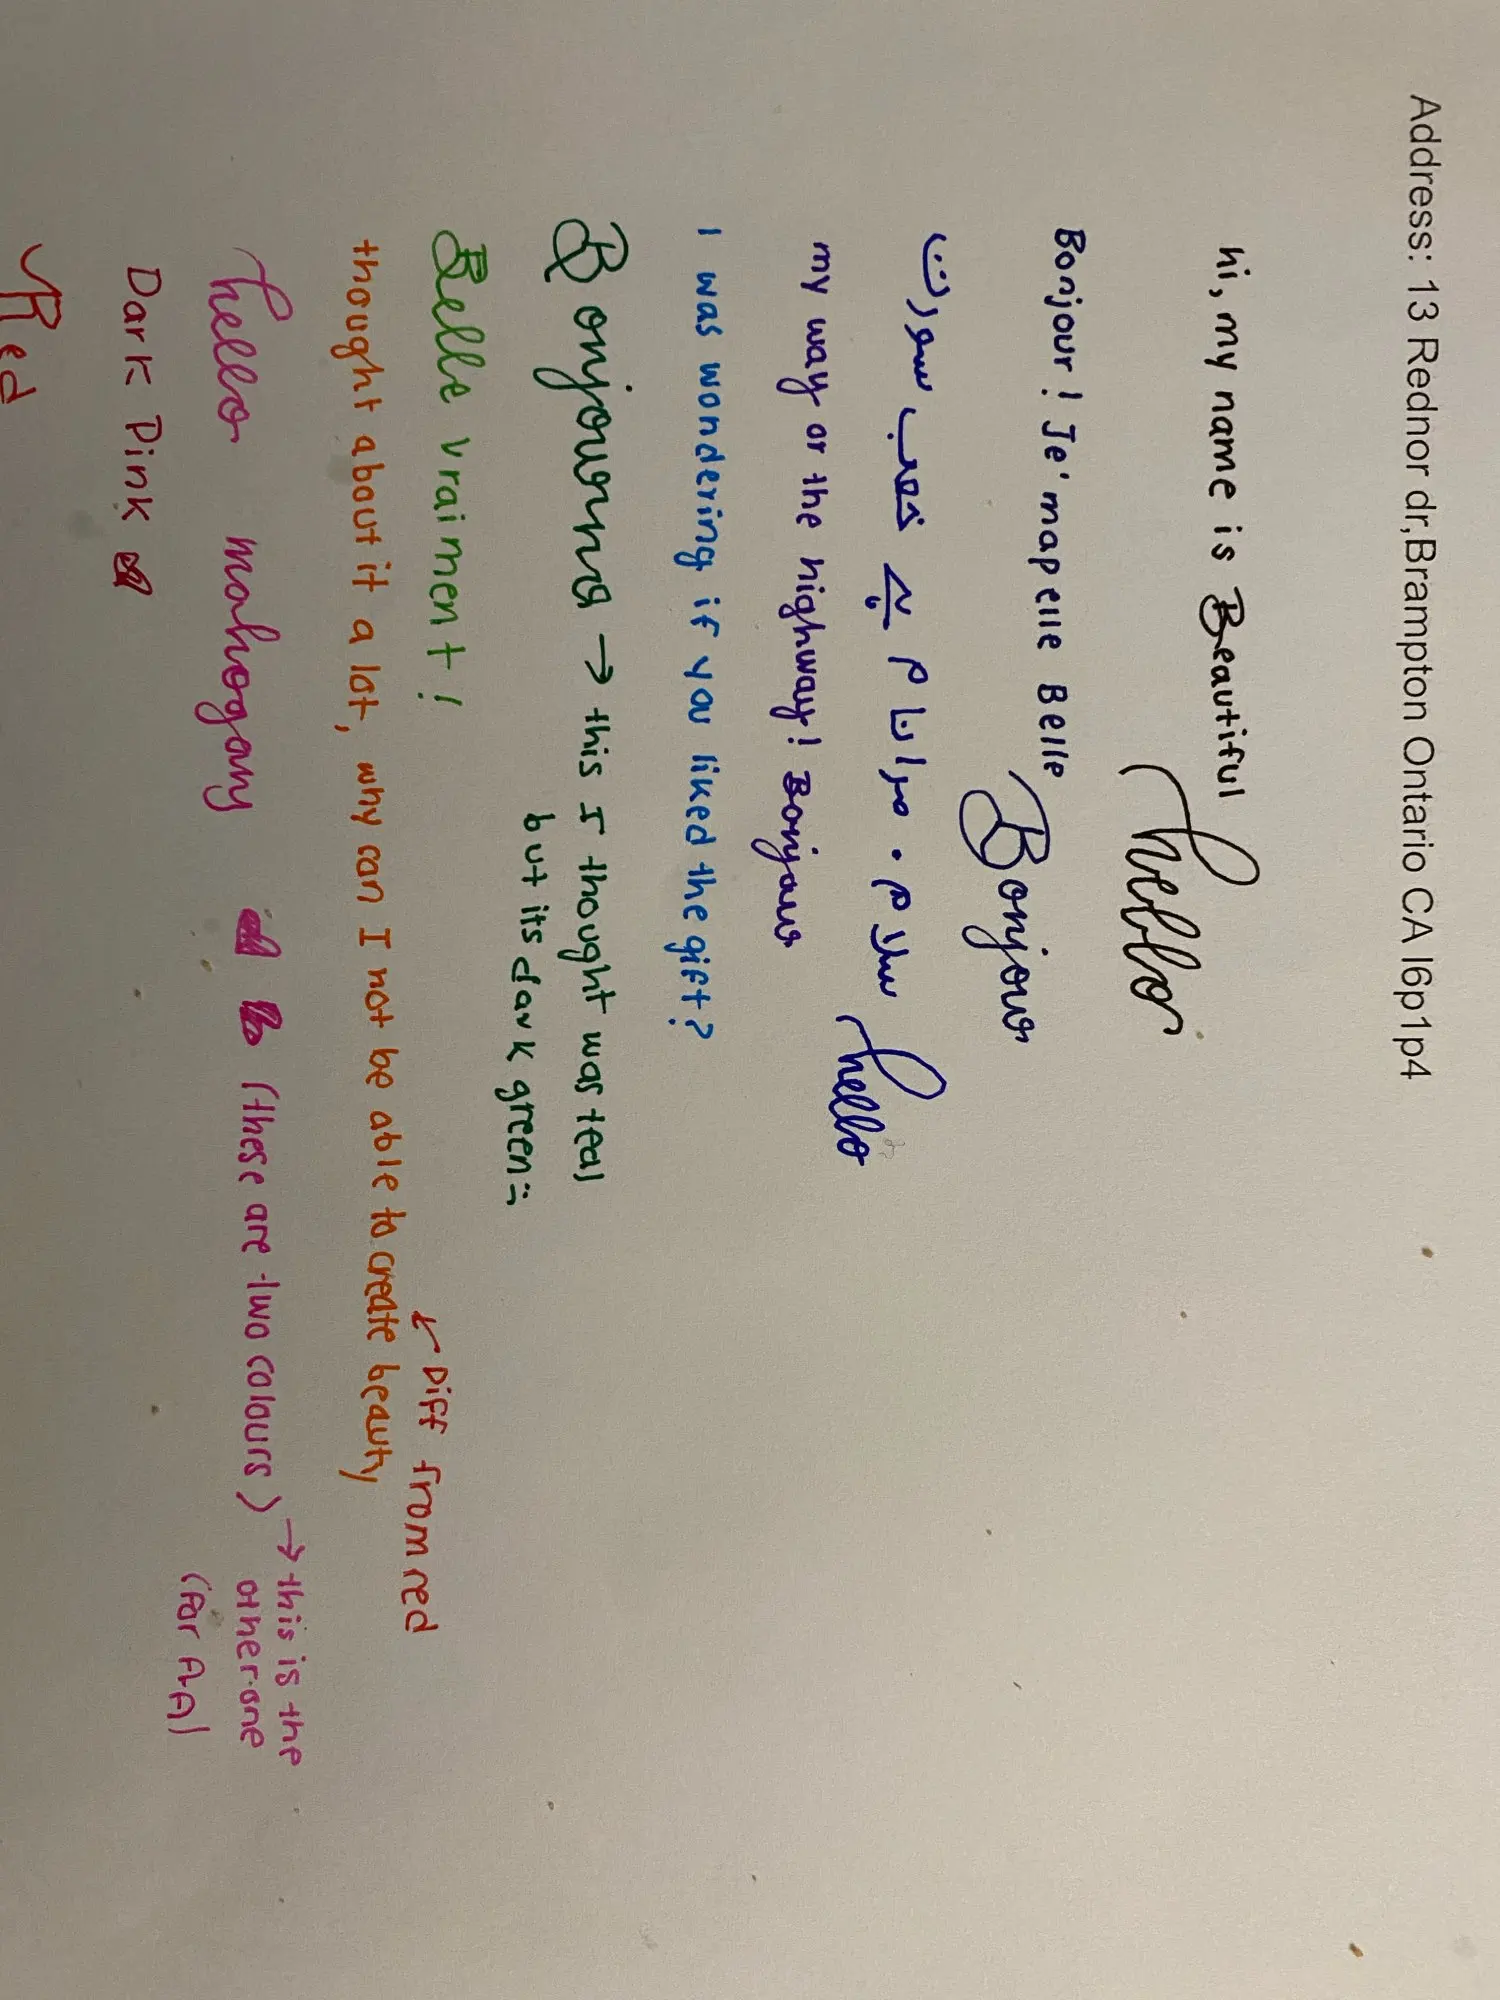 Address: 13 Rednor dr,Brampton Ontario CA l6p1p4
hi, my name is Beautiful
hello
Bonjour! Je'mapelle Belle
Bonjour
سلام . میرا نام ہے خوب سورت
hello
my way or the highway! Bonjour
I was wondering if you liked the gift?
Bonjourna → this I thought was teal
but its dark green :)
Belle vraiment!
↙ Diff from red
thought about it a lot, why can I not be able to create beauty
hello mahogany (these are two colours) → this is the
other one
(for AA)
Dark Pink
Red